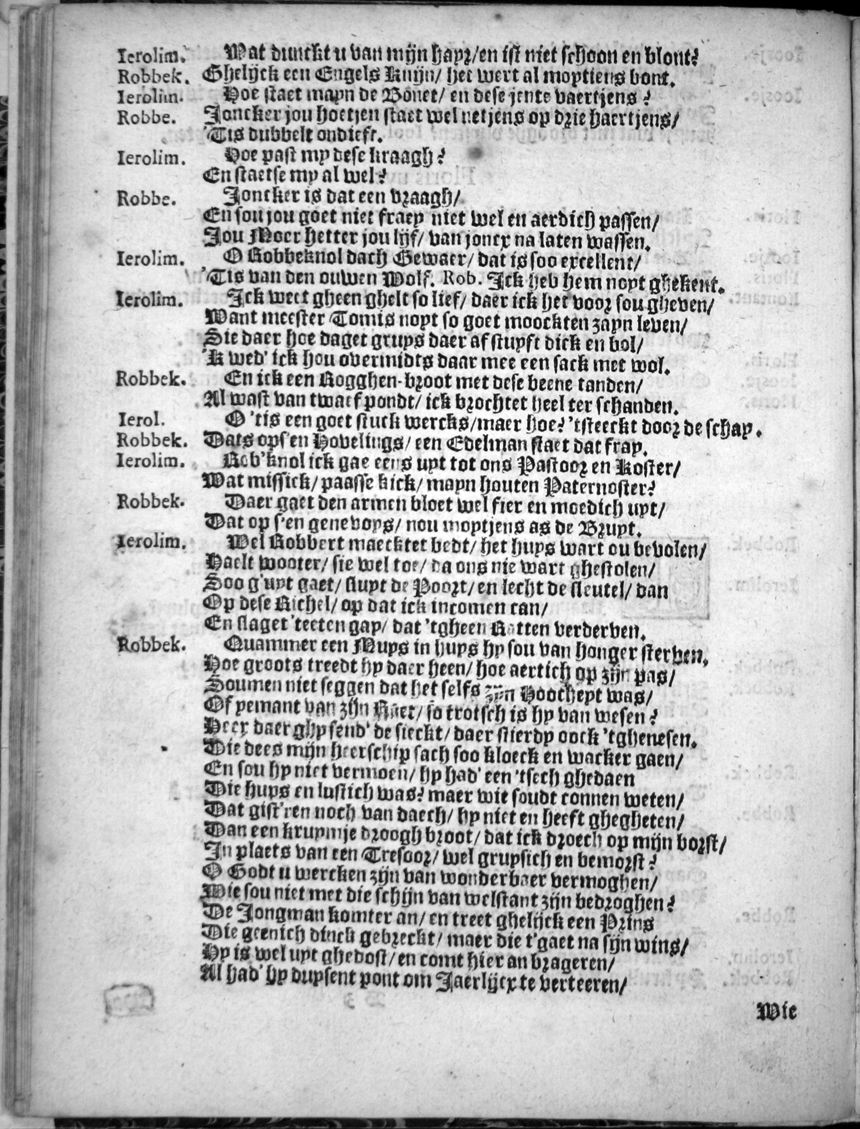 Ierolim. Wat dunckt u van mijn hayr/ en ist niet schoon en blont?
Robbek. Ghelijck een Engels Knijn/ het wert al moytiens bont.
Ierolim. Hoe staet mayn de Bonet/ en dese jente vaertjens?
Robbe. Joncker jou hoetjen staet wel netjens op drie haertjens/
'Tis dubbelt ondieft.
Ierolim. Hoe past my dese kraagh?
En staetse my al wel?
Robbe. Joncker is dat een vraagh/
En sou jou goet niet fraey niet wel en aerdich passen/
Jou Moer hetter jou lijf/ van joncx na laten wassen.
Ierolim. O Robbeknol dach Gewaer/ dat is soo excellent/
'Tis van den ouwen Wolf. Rob. Ick heb hem noyt ghekent.
Ierolim. Ick weet gheen ghelt so lief/ daer ick het voor sou gheven/
Want meester Tomis noyt so goet moockten zayn leven/
Sie daer hoe daget gruys daer af stuyft dick en bol/
'K wed' ick hou overmidts daar mee een sack met wol.
Robbek. En ick een Rogghen-broot met dese beene tanden/
Al wast van twaef pondt/ ick brochtet heel ter schanden.
Ierol. O 'tis een goet stuck wercks/ maer hoe? 'tsteeckt door de schay.
Robbek. Dats opsen Hovelings/ een Edelman staet dat fray.
Ierolim. Rob'knol ick gae eens uyt tot ons Pastoor en Koster/
Wat missick/ paasse kick/ mayn houten Paternoster?
Robbek. Daer gaet den armen bloet wel fier en moedich uyt/
Dat op s'en genevoys/ nou moytjens as de Bruyt.
Ierolim. Wel Robbert maecktet bedt/ het huys wart ou bevolen/
Haelt wooter/ sie wel toe/ da ons nie wart ghestolen/
Soo g'uyt gaet/ sluyt de Poort/ en lecht de sleutel/ dan
Op dese Richel/ op dat ick incomen can/
En slaget 'teeten gay/ dat 'tgheen Ratten verderven.
Robbek. Quammer een Muys in huys hy sou van honger sterven.
Hoe groots treedt hy daer heen/ hoe aertich op zijn pas/
Soumen niet seggen dat het selfs zijn Hoocheyt was/
Of yemant van zijn Raet/ so trotsch is hy van wesen?
Heer daer ghy send' de sieckt/ daer stierdy oock 'tghenesen.
Die dees mijn heerschip sach soo kloeck en wacker gaen/
En sou hy niet vermoen/ hy had' een 'tsech ghedaen
Die huys en lustich was? maer wie soudt connen weten/
Dat gist'ren noch van daech/ hy niet en heeft ghegheten/
Dan een kruymje droogh broot/ dat ick droech op mijn borst/
In plaets van een Tresoor/ wel gruysich en bemorst?
O Godt u wercken zijn van wonderbaer vermoghen/
Wie sou niet met die schijn van welstant zijn bedroghen?
De Jongman komter an/ en treet ghelijck een Prins
Die geenich dinck gebreckt/ maer die t'gaet na sijn wins/
Hy is wel uyt ghedost/ en comt hier an brageren/
Al had' hy duysent pont om Jaerlijcx te verteeren/
Wie